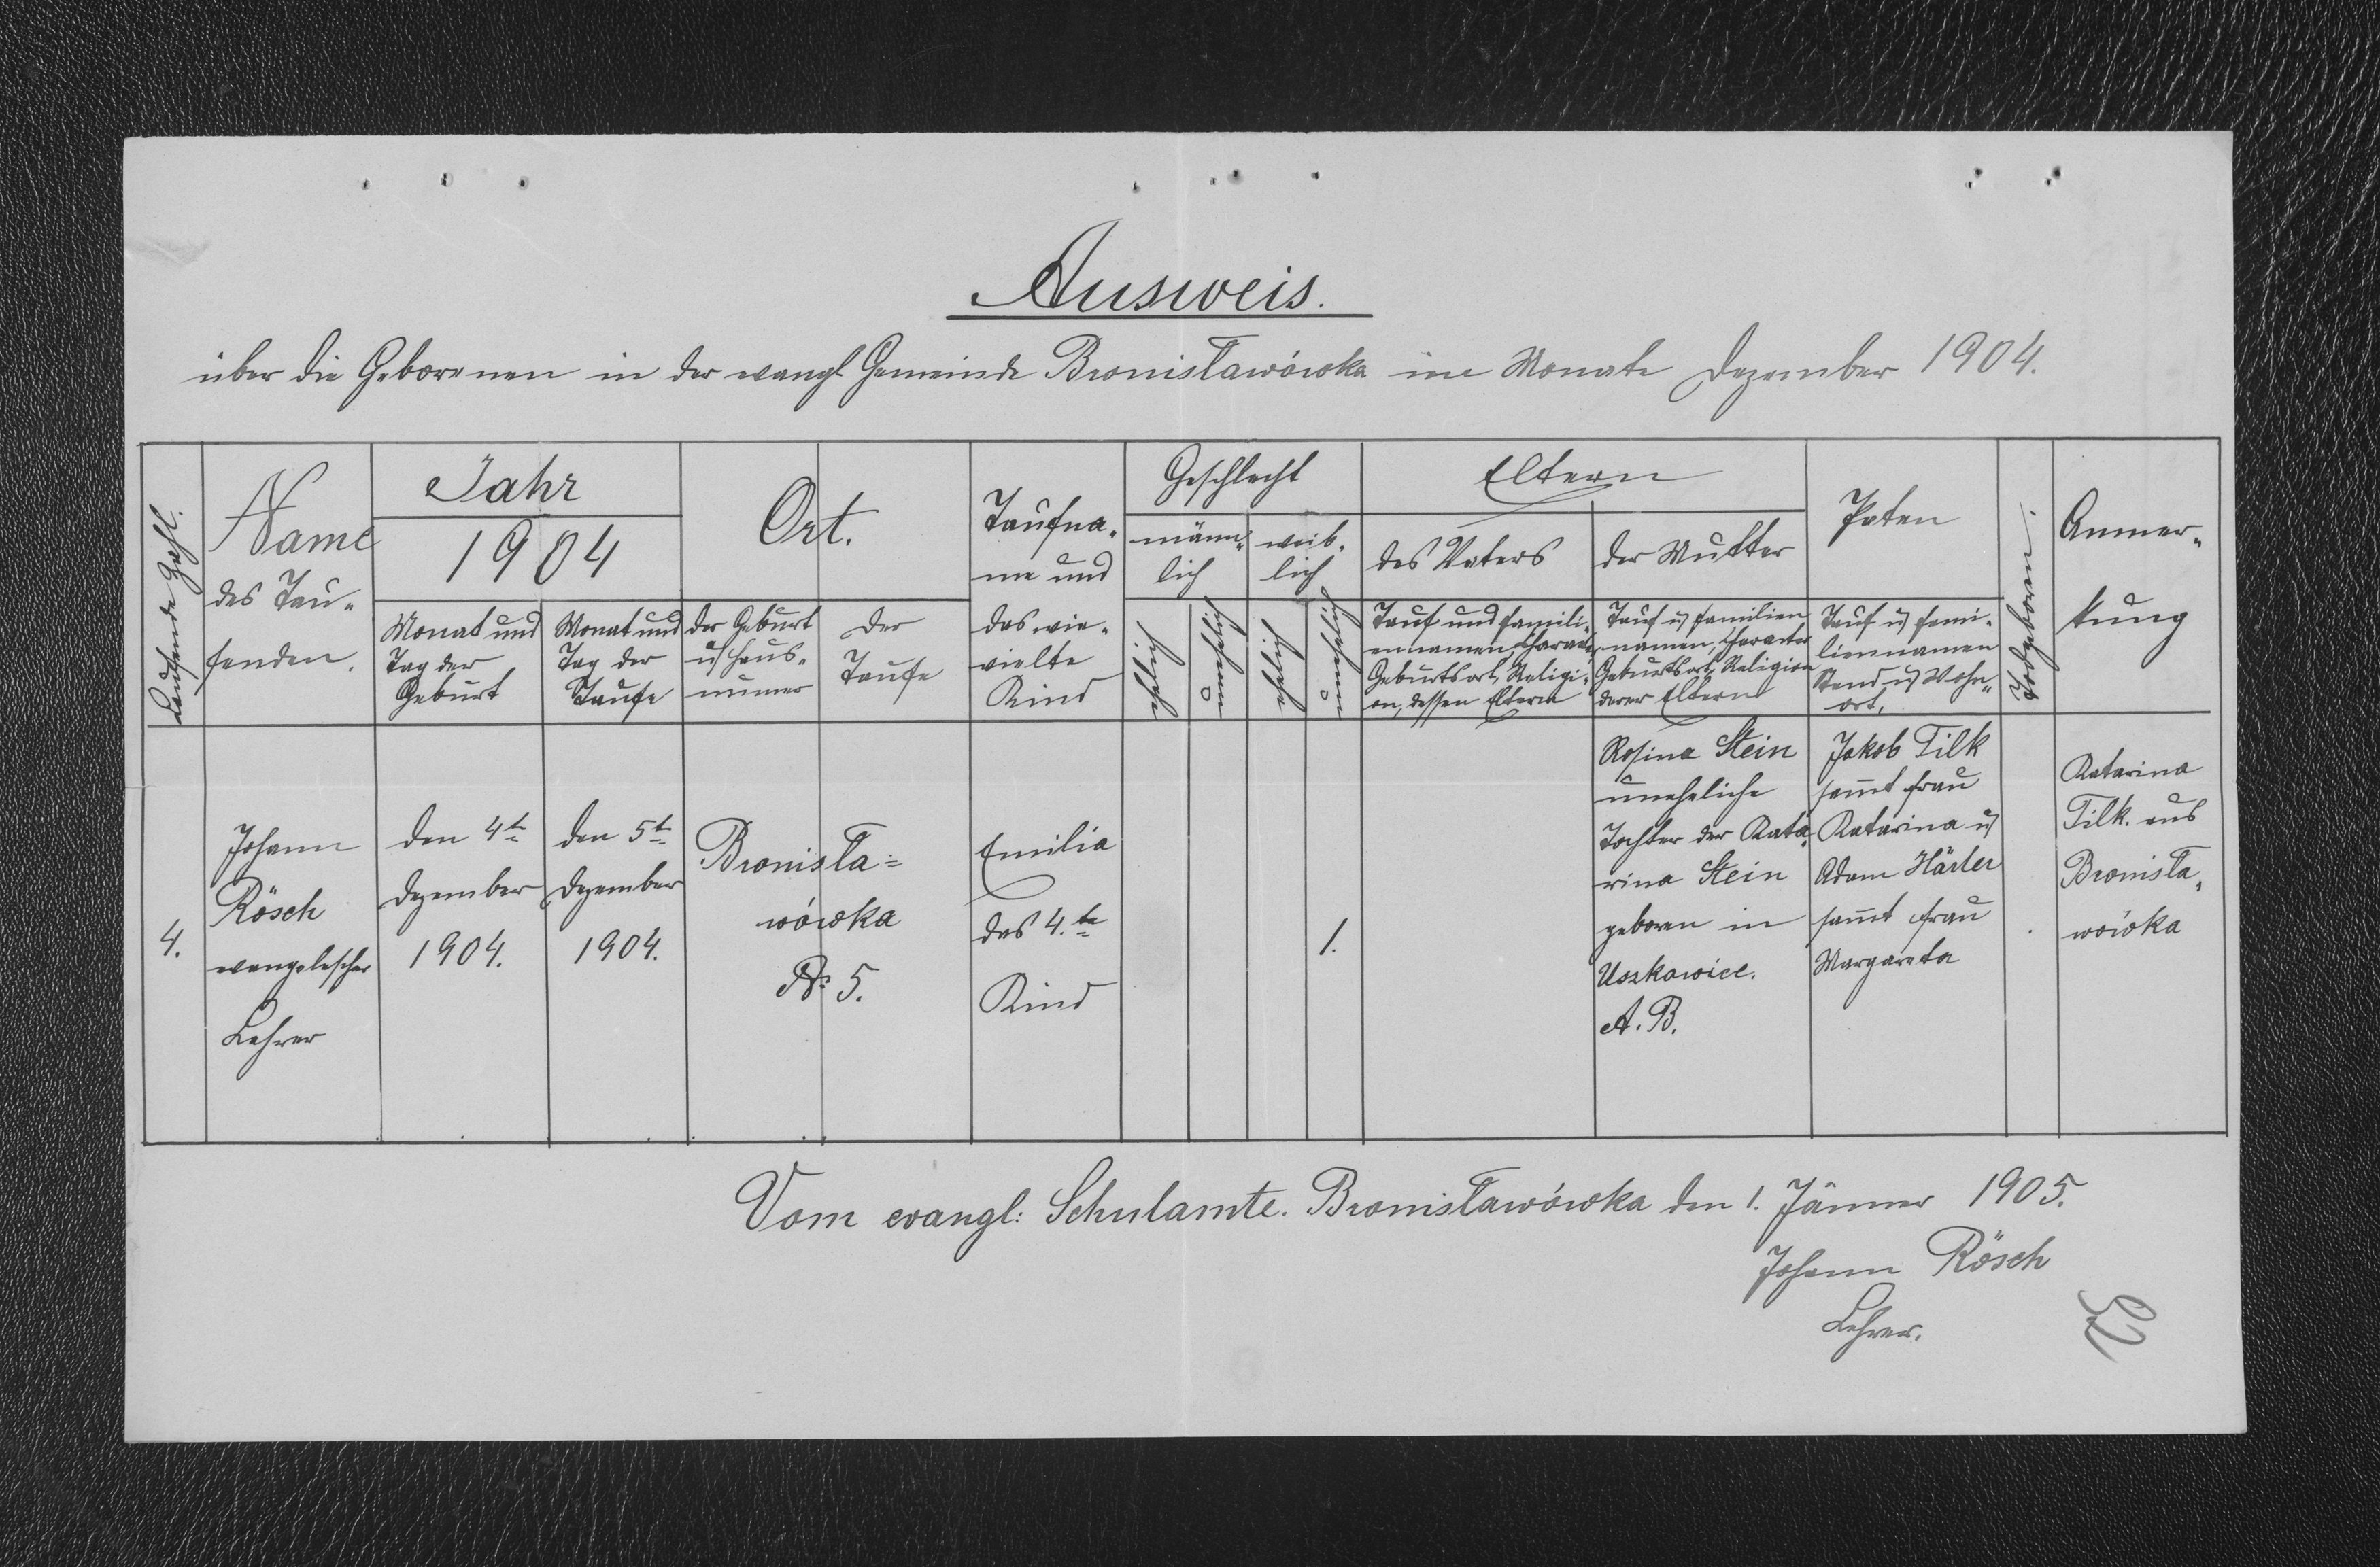 Ausweis.
über die Geborenen in der evangl Gemeinde Bronisławówka im Monate Dezember 1904.
Laufende Zahl.
Name
des Tau-
fenden.
Jahr
1904
Monat und
Tag der
Geburt
Monat und
Tag der
Taufe
Ort.
der Geburt
u Haus-
numer
der
Taufe
Taufna-
me und
das wie-
vielte
Kind
Geschlecht
männ-
lich
weib-
lich
ehelich
unehelich
ehelich
unehelich
Eltern
des Vaters
der Mutter
Tauf und Famili-
ennamen, Charakt,
Geburtsort, Religi-
on, dessen Eltern
Tauf u Familien
namen, Charakter
Geburtsort, Religion
derer Eltern
Paten
Tauf u Fami-
liennamen
Stand u Wohn-
ort.
Todgeboren.
Anmer-
kung
4.
Johann
Rösch
evangelischer
Lehrer
den 4te
Dezember
1904.
den 5te
Dezember
1904.
Bronisła=
wówka
No 5.
Emilia
das 4.te
Kind
1.
Rosina Stein
uneheliche
Tochter der Kata-
rina Stein
geboren in
Uszkowice.
A. B.
Jakob Tilk
samt Frau
Katarina u
Adam Härter
samt Frau
Margareta
Katarina
Tilk. aus
Bronisła-
wówka
Vom evangl: Schulamte. Bronisławówka den 1. Jänner 1905.
Johann Rösch
Lehrer.